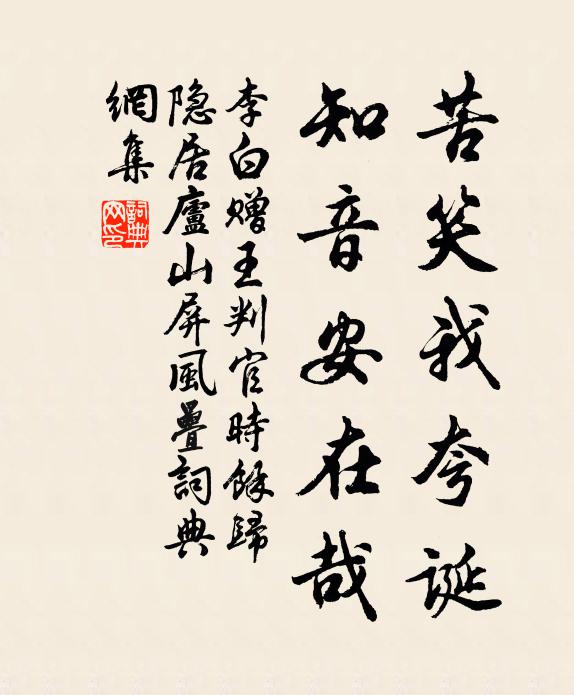 苦笑我夸誕
知音安在哉
李白贈王判官時餘歸
隐居廬山屏風疊詞典
網集
詞典
网印